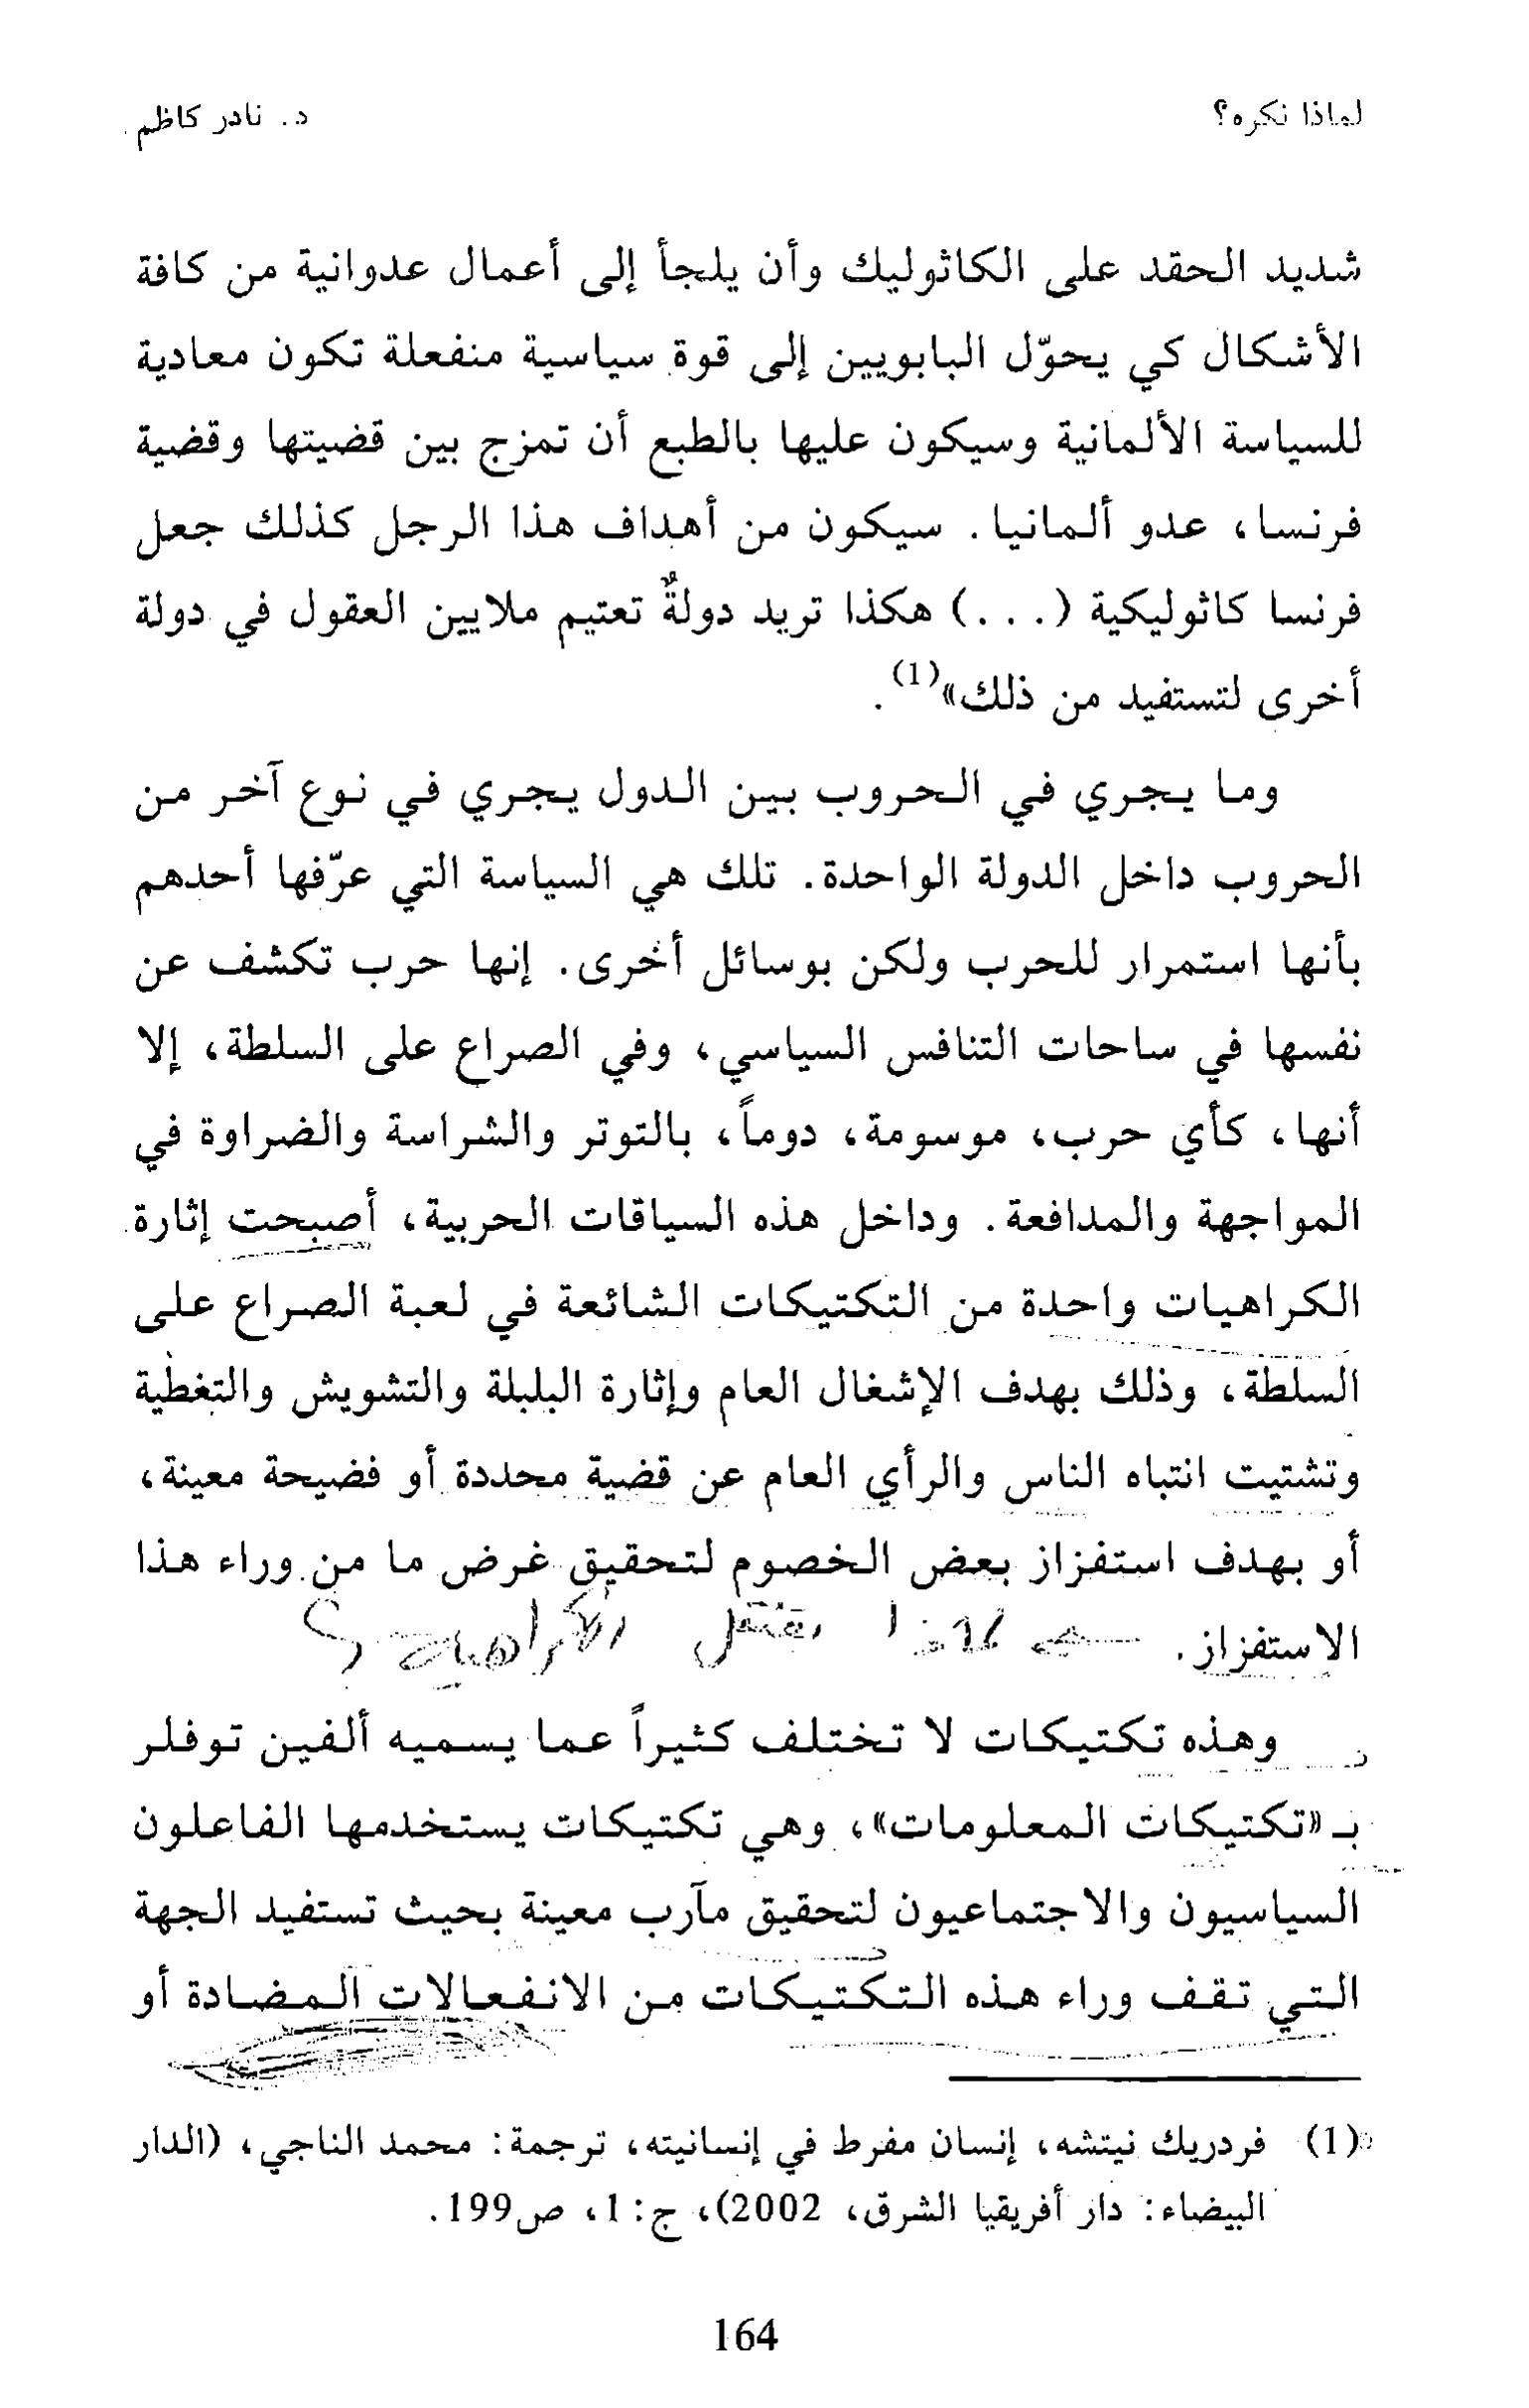 لماذا نكره؟
د. نادر كاظم
شديد الحقد على الكاثوليك وأن يلجأ إلى أعمال عدوانية من كافة
الأشكال كي يحوّل البابويين إلى قوة سياسية منفعلة تكون معادية
للسياسة الألمانية وسيكون عليها بالطبع أن تمزج بين قضيتها وقضية
فرنسا، عدو ألمانيا. سيكون من أهداف هذا الرجل كذلك جعل
فرنسا كاثوليكية (...) هكذا تريد دولةٌ تعتيم ملايين العقول في دولة
أخرى لتستفيد من ذلك»(1).
وما يجري في الحروب بين الدول يجري في نوع آخر من
الحروب داخل الدولة الواحدة. تلك هي السياسة التي عرّفها أحدهم
بأنها استمرار للحرب ولكن بوسائل أخرى. إنها حرب تكشف عن
نفسها في ساحات التنافس السياسي، وفي الصراع على السلطة، إلا
أنها، كأي حرب، موسومة، دوماً، بالتوتر والشراسة والضراوة في
المواجهة والمدافعة. وداخل هذه السياقات الحربية، أصبحت إثارة
الكراهيات واحدة من التكتيكات الشائعة في لعبة الصراع على
السلطة، وذلك بهدف الإشغال العام وإثارة البلبلة والتشويش والتغطية
وتشتيت انتباه الناس والرأي العام عن قضية محددة أو فضيحة معينة،
أو بهدف استفزاز بعض الخصوم لتحقيق غرض ما من وراء هذا
الاستفزاز. لماذا الكراهية؟
وهذه تكتيكات لا تختلف كثيراً عما يسميه ألفين توفلر
بـ «تكتيكات المعلومات»، وهي تكتيكات يستخدمها الفاعلون
السياسيون والاجتماعيون لتحقيق مآرب معينة بحيث تستفيد الجهة
التي تقف وراء هذه التكتيكات من الانفعالات المضادة أو
(1) فردريك نيتشه، إنسان مفرط في إنسانيته، ترجمة: محمد الناجي، (الدار
البيضاء: دار أفريقيا الشرق، 2002)، ج:1، ص199.
164